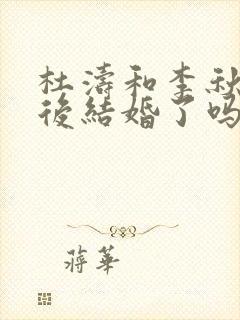 杜濤和李秋
後結婚了吗
蔣華